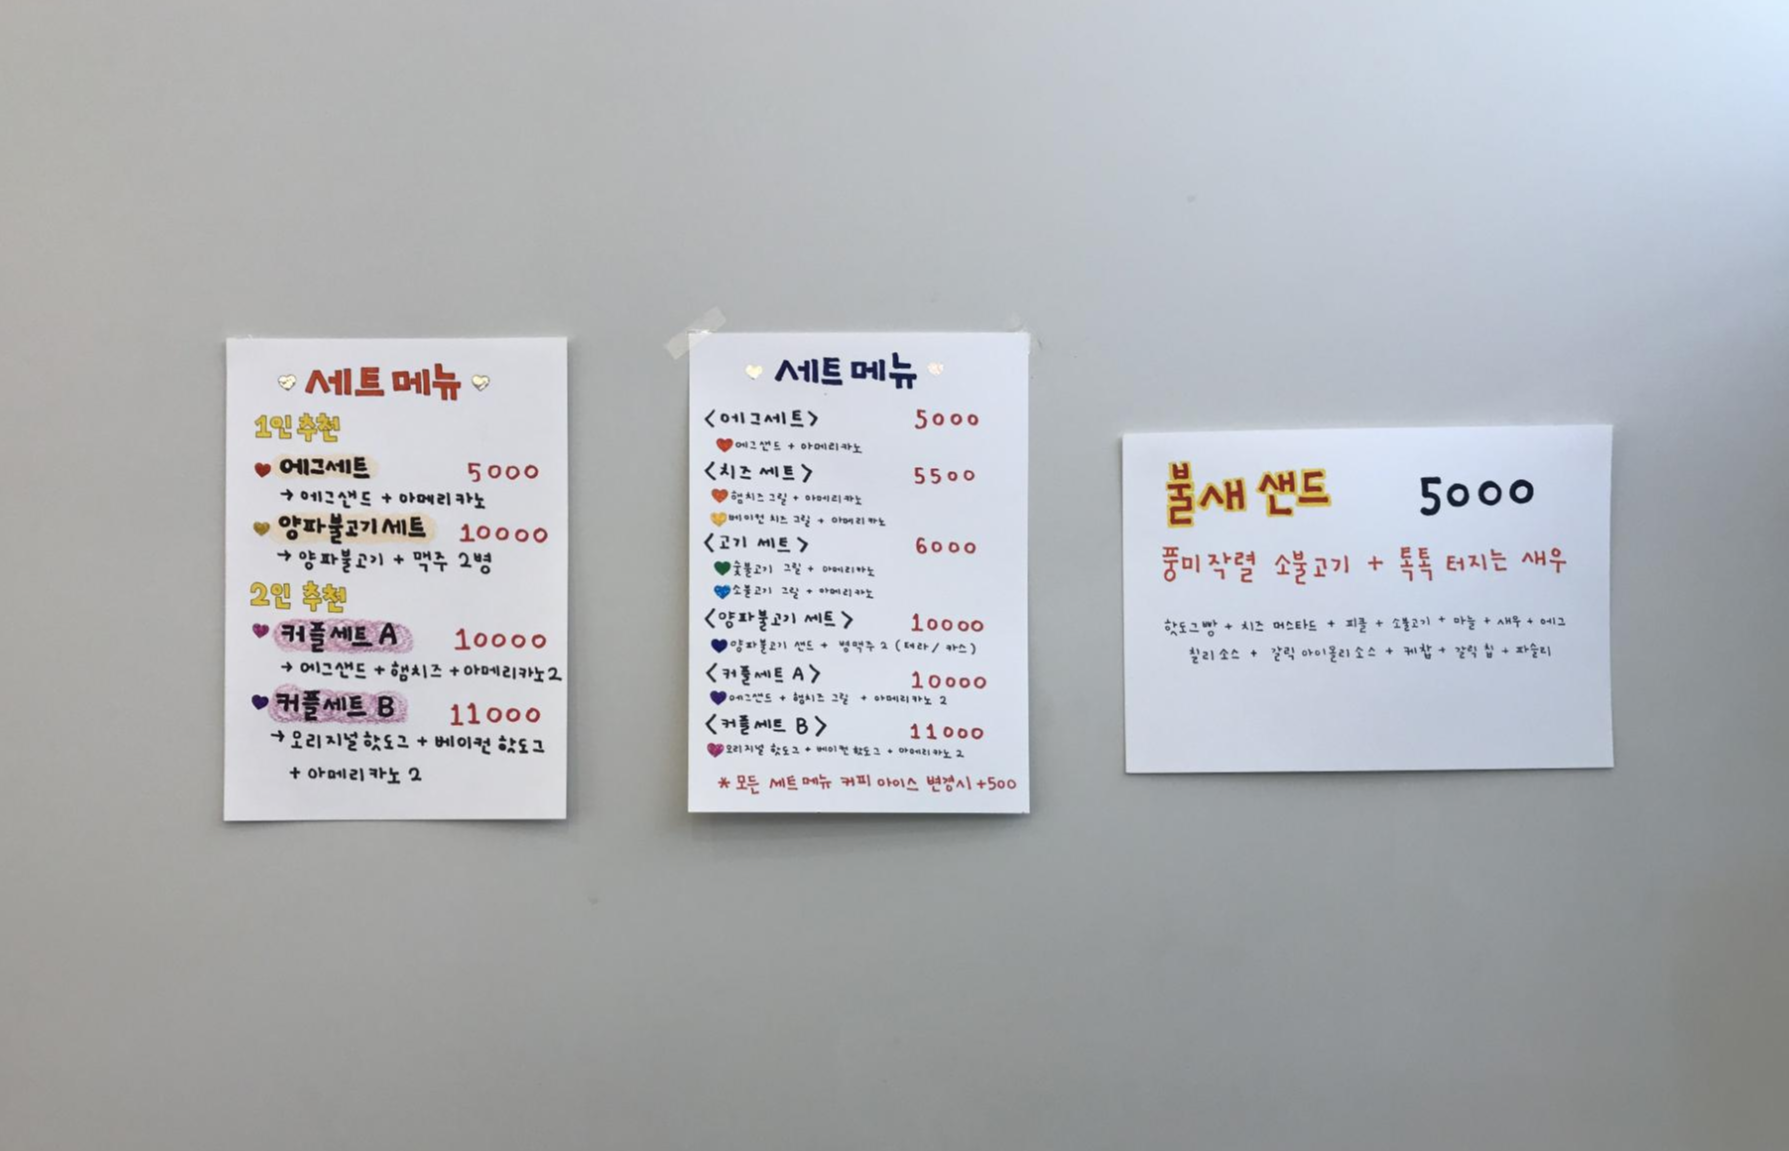 세트 메뉴
1인 추천
에그세트 5000
→ 에그샌드 + 아메리카노
양파불고기세트 10000
→ 양파불고기 + 맥주 2병
2인 추천
커플세트 A 10000
→ 에그샌드 + 햄치즈 + 아메리카노2
커플세트 B 11000
→ 오리지널핫도그 + 베이컨핫도그
+ 아메리카노 2
세트 메뉴
<에그세트> 5000
에그샌드 + 아메리카노
<치즈 세트> 5500
햄치즈 그릴 + 아메리카노
베이컨 치즈 그릴 + 아메리카노
<고기 세트> 6000
숯불고기 그릴 + 아메리카노
소불고기 그릴 + 아메리카노
<양파불고기 세트> 10000
양파불고기 샌드 + 병맥주 2 (테라/카스)
<커플세트 A> 10000
에그샌드 + 햄치즈 그릴 + 아메리카노 2
<커플세트 B> 11000
오리지널 핫도그 + 베이컨 핫도그 + 아메리카노 2
*모든 세트메뉴 커피 아이스 변경시 +500
불새 샌드 5000
풍미작렬 소불고기 + 톡톡 터지는 새우
핫도그빵 + 치즈 머스타드 + 피클 + 소불고기 + 마늘 + 새우 + 에그
칠리소스 + 갈릭 아이올리소스 + 케찹 + 갈릭 칩 + 파슬리